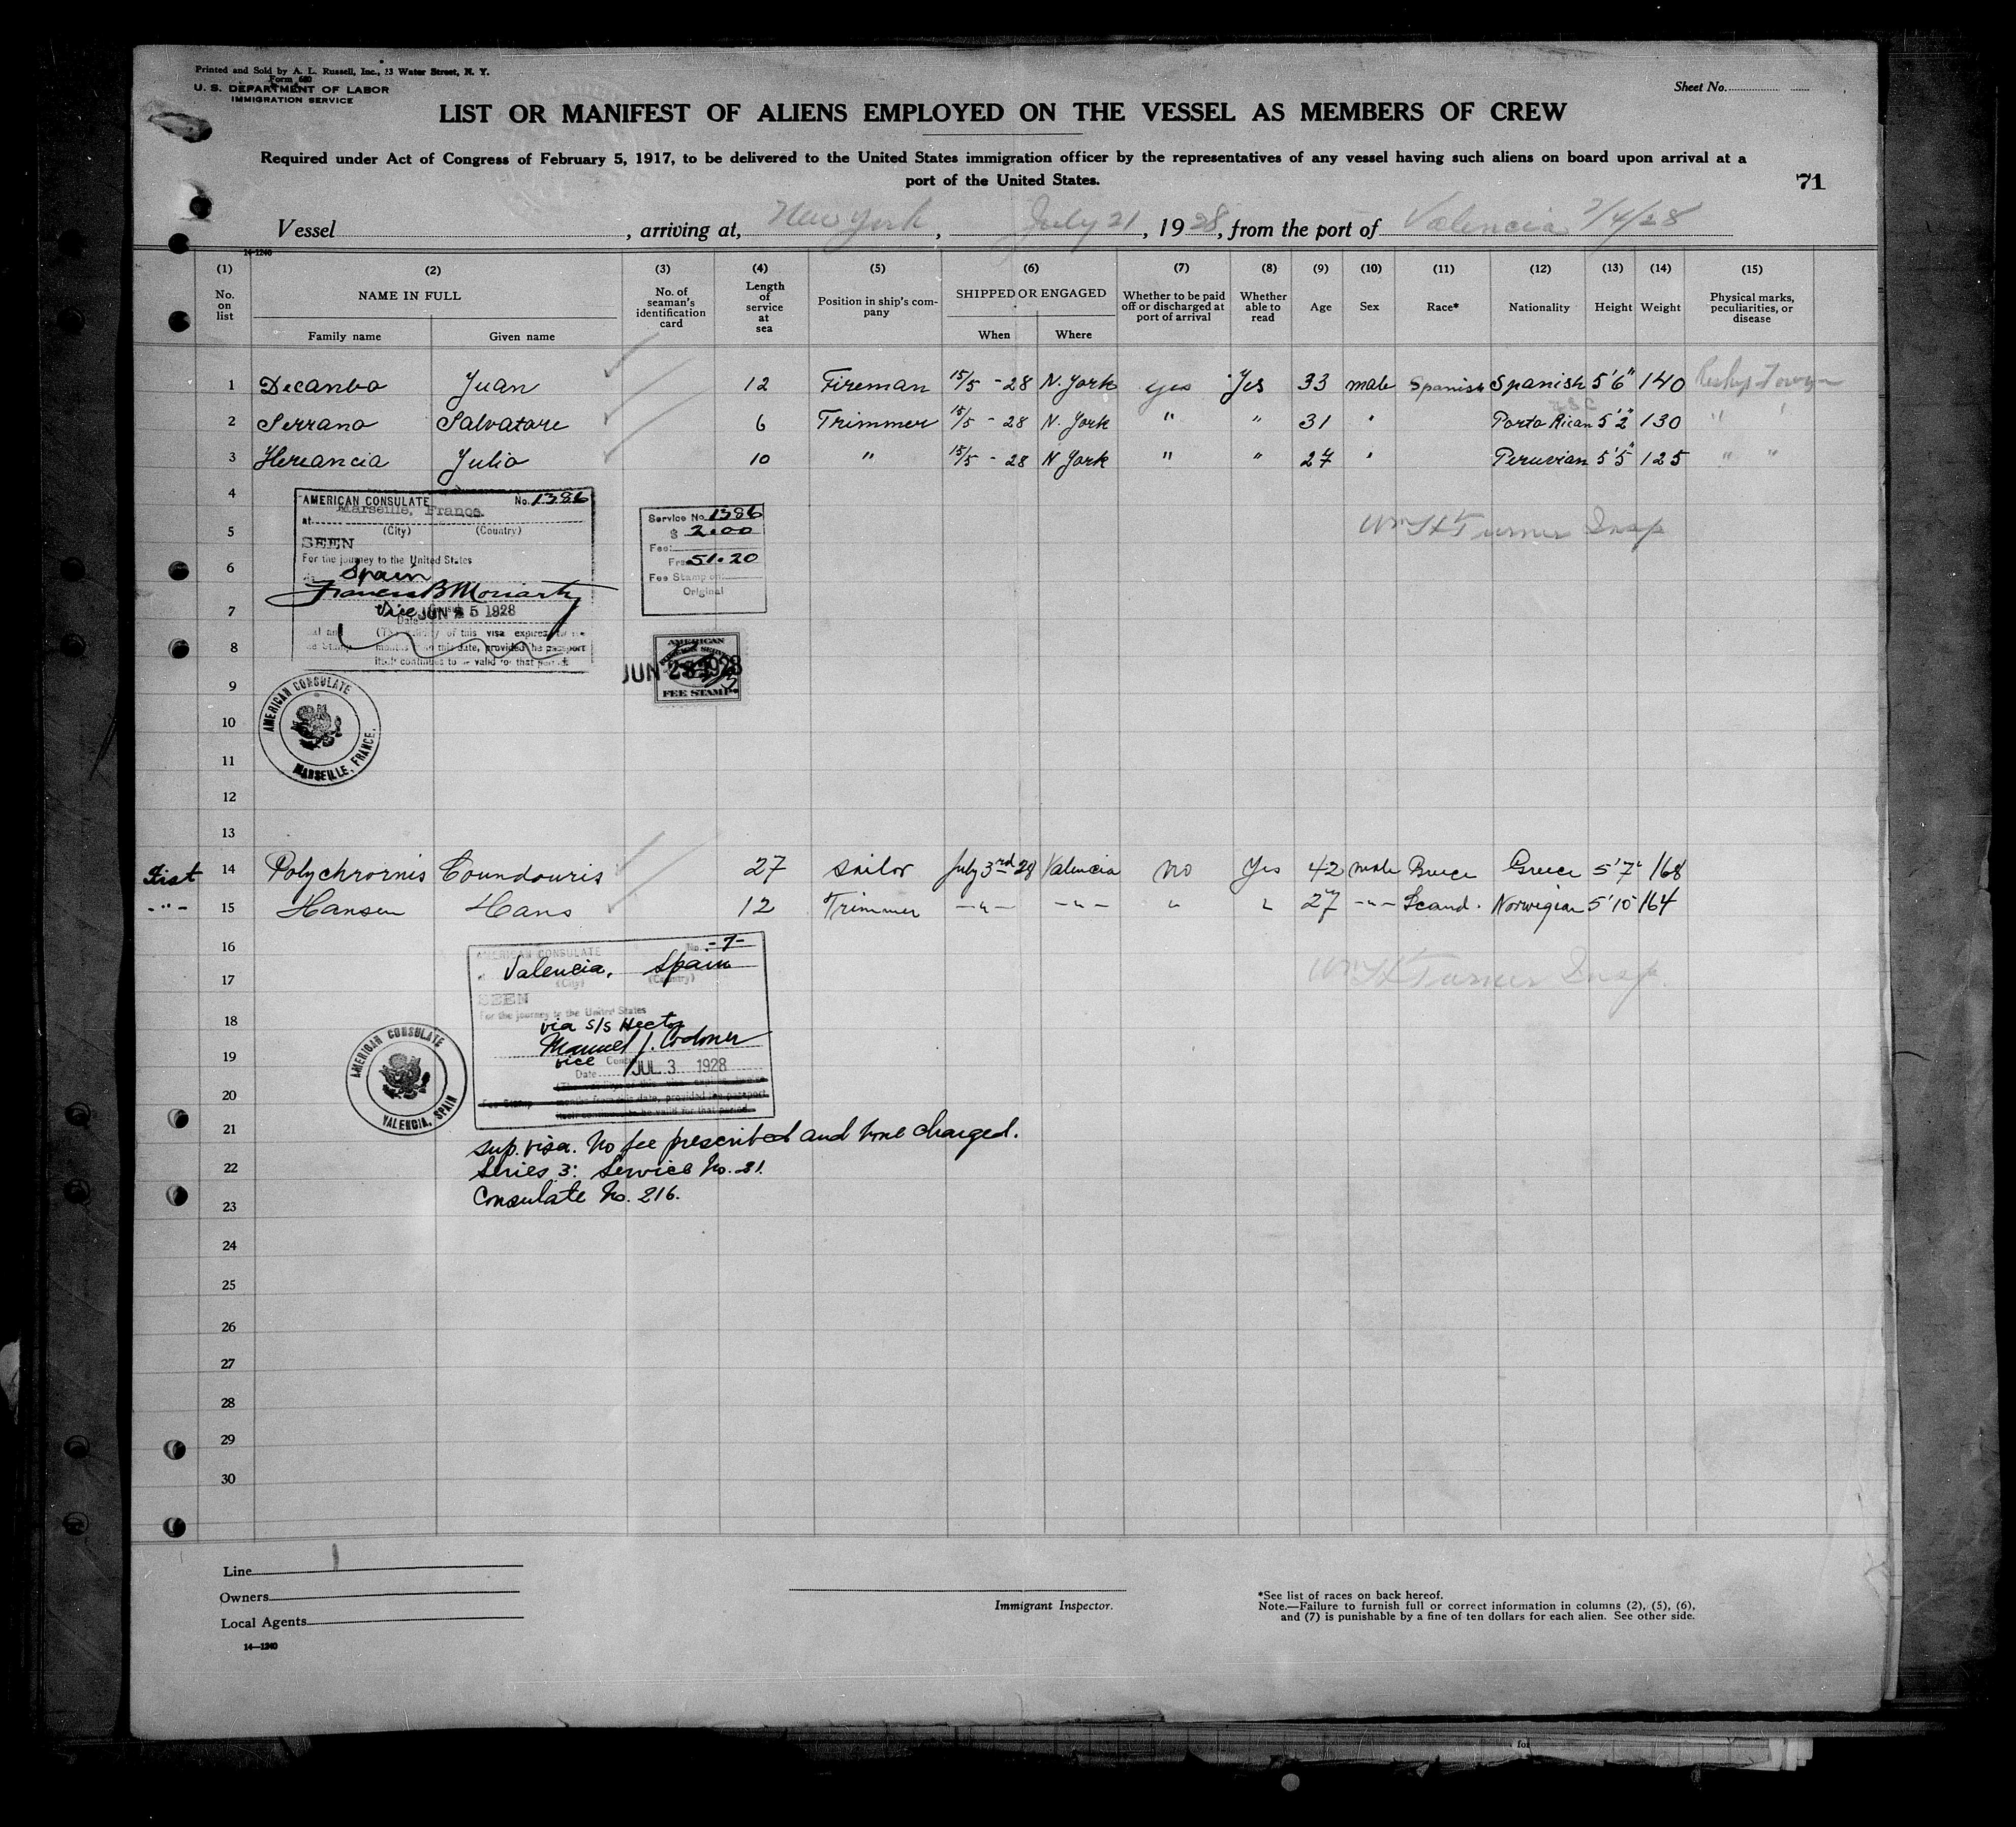 Printed and Sold by A. L. Russell, Inc., 23 Water Street, N. Y.
Form 680
U. S. DEPARTMENT OF LABOR
IMMIGRATION SERVICE
Sheet No.
LIST OR MANIFEST OF ALIENS EMPLOYED ON THE VESSEL AS MEMBERS OF CREW
Required under Act of Congress of February 5, 1917, to be delivered to the United States immigration officer by the representatives of any vessel having such aliens on board upon arrival at a
port of the United States.
71
Vessel , arriving at, New York , July 21 , 1928, from the port of Valencia 7/4/28
14-1240
(1) (2) (3) (4) (5) (6) (7) (8) (9) (10) (11) (12) (13) (14) (15)
No. on list
NAME IN FULL
Family name
Given name
No. of seaman's identification card
Length of service at sea
Position in ship's company
SHIPPED OR ENGAGED
When
Where
Whether to be paid off or discharged at port of arrival
Whether able to read
Age
Sex
Race*
Nationality
Height
Weight
Physical marks, peculiarities, or disease
1 Decanba Juan 12 Fireman 15/5 - 28 N. York yes Yes 33 male Spanish Spanish 5'6" 140
2 Serrano Salvatore 6 Trimmer 15/5 - 28 N. York " " 31 " Porto Rican 5'2" 130 " "
USC
3 Hereancia Julio 10 " 15/5 - 28 N York " " 27 " Peruvian 5'5" 125 " "
4
5
6
7
8
9
10
11
12
13
AMERICAN CONSULATE No. 1386
at Marseille, France.
(City) (Country)
SEEN
For the journey to the United States
Spain
Francis B Moriarty
Vice
Date JUN 25 1928
(The validity of this visa expires
months from this date, provided the passport
itself continues to be valid for that period.
Service No. 1386
$ 2.00
Fee:
Frs. 51.20
Fee Stamp on
Original
Wm H Turner Insp
AMERICAN
FOREIGN SERVICE
JUN 28 1928
FEE STAMP
AMERICAN CONSULATE
MARSEILLE, FRANCE.
First 14 Polychrornis Coundouris 27 sailor July 3rd 28 Valencia no Yes 42 male Greece Greece 5'7" 168
-"- 15 Hansen Hans 12 Trimmer -"- -"- " " 27 -"- Scand. Norwegian 5'10" 164
16
17
18
19
20
21
22
23
24
25
26
27
28
29
30
AMERICAN CONSULATE No. -7-
at Valencia, Spain
(City) (Country)
SEEN
For the journey to the United States
via s/s Hector
Manuel J. Codoner
vice Consul
Date JUL 3 1928
Fee Stamp months from this date, provided the passport
itself continues to be valid for that period.
Wm H Turner Insp.
AMERICAN CONSULATE
VALENCIA, SPAIN
Sup. visa. No fee prescribed and none charged.
Series 3: Service No. 31.
Consulate No. 216.
Line
Owners
Local Agents
14—1240
Immigrant Inspector.
*See list of races on back hereof.
Note.—Failure to furnish full or correct information in columns (2), (5), (6),
and (7) is punishable by a fine of ten dollars for each alien. See other side.
for